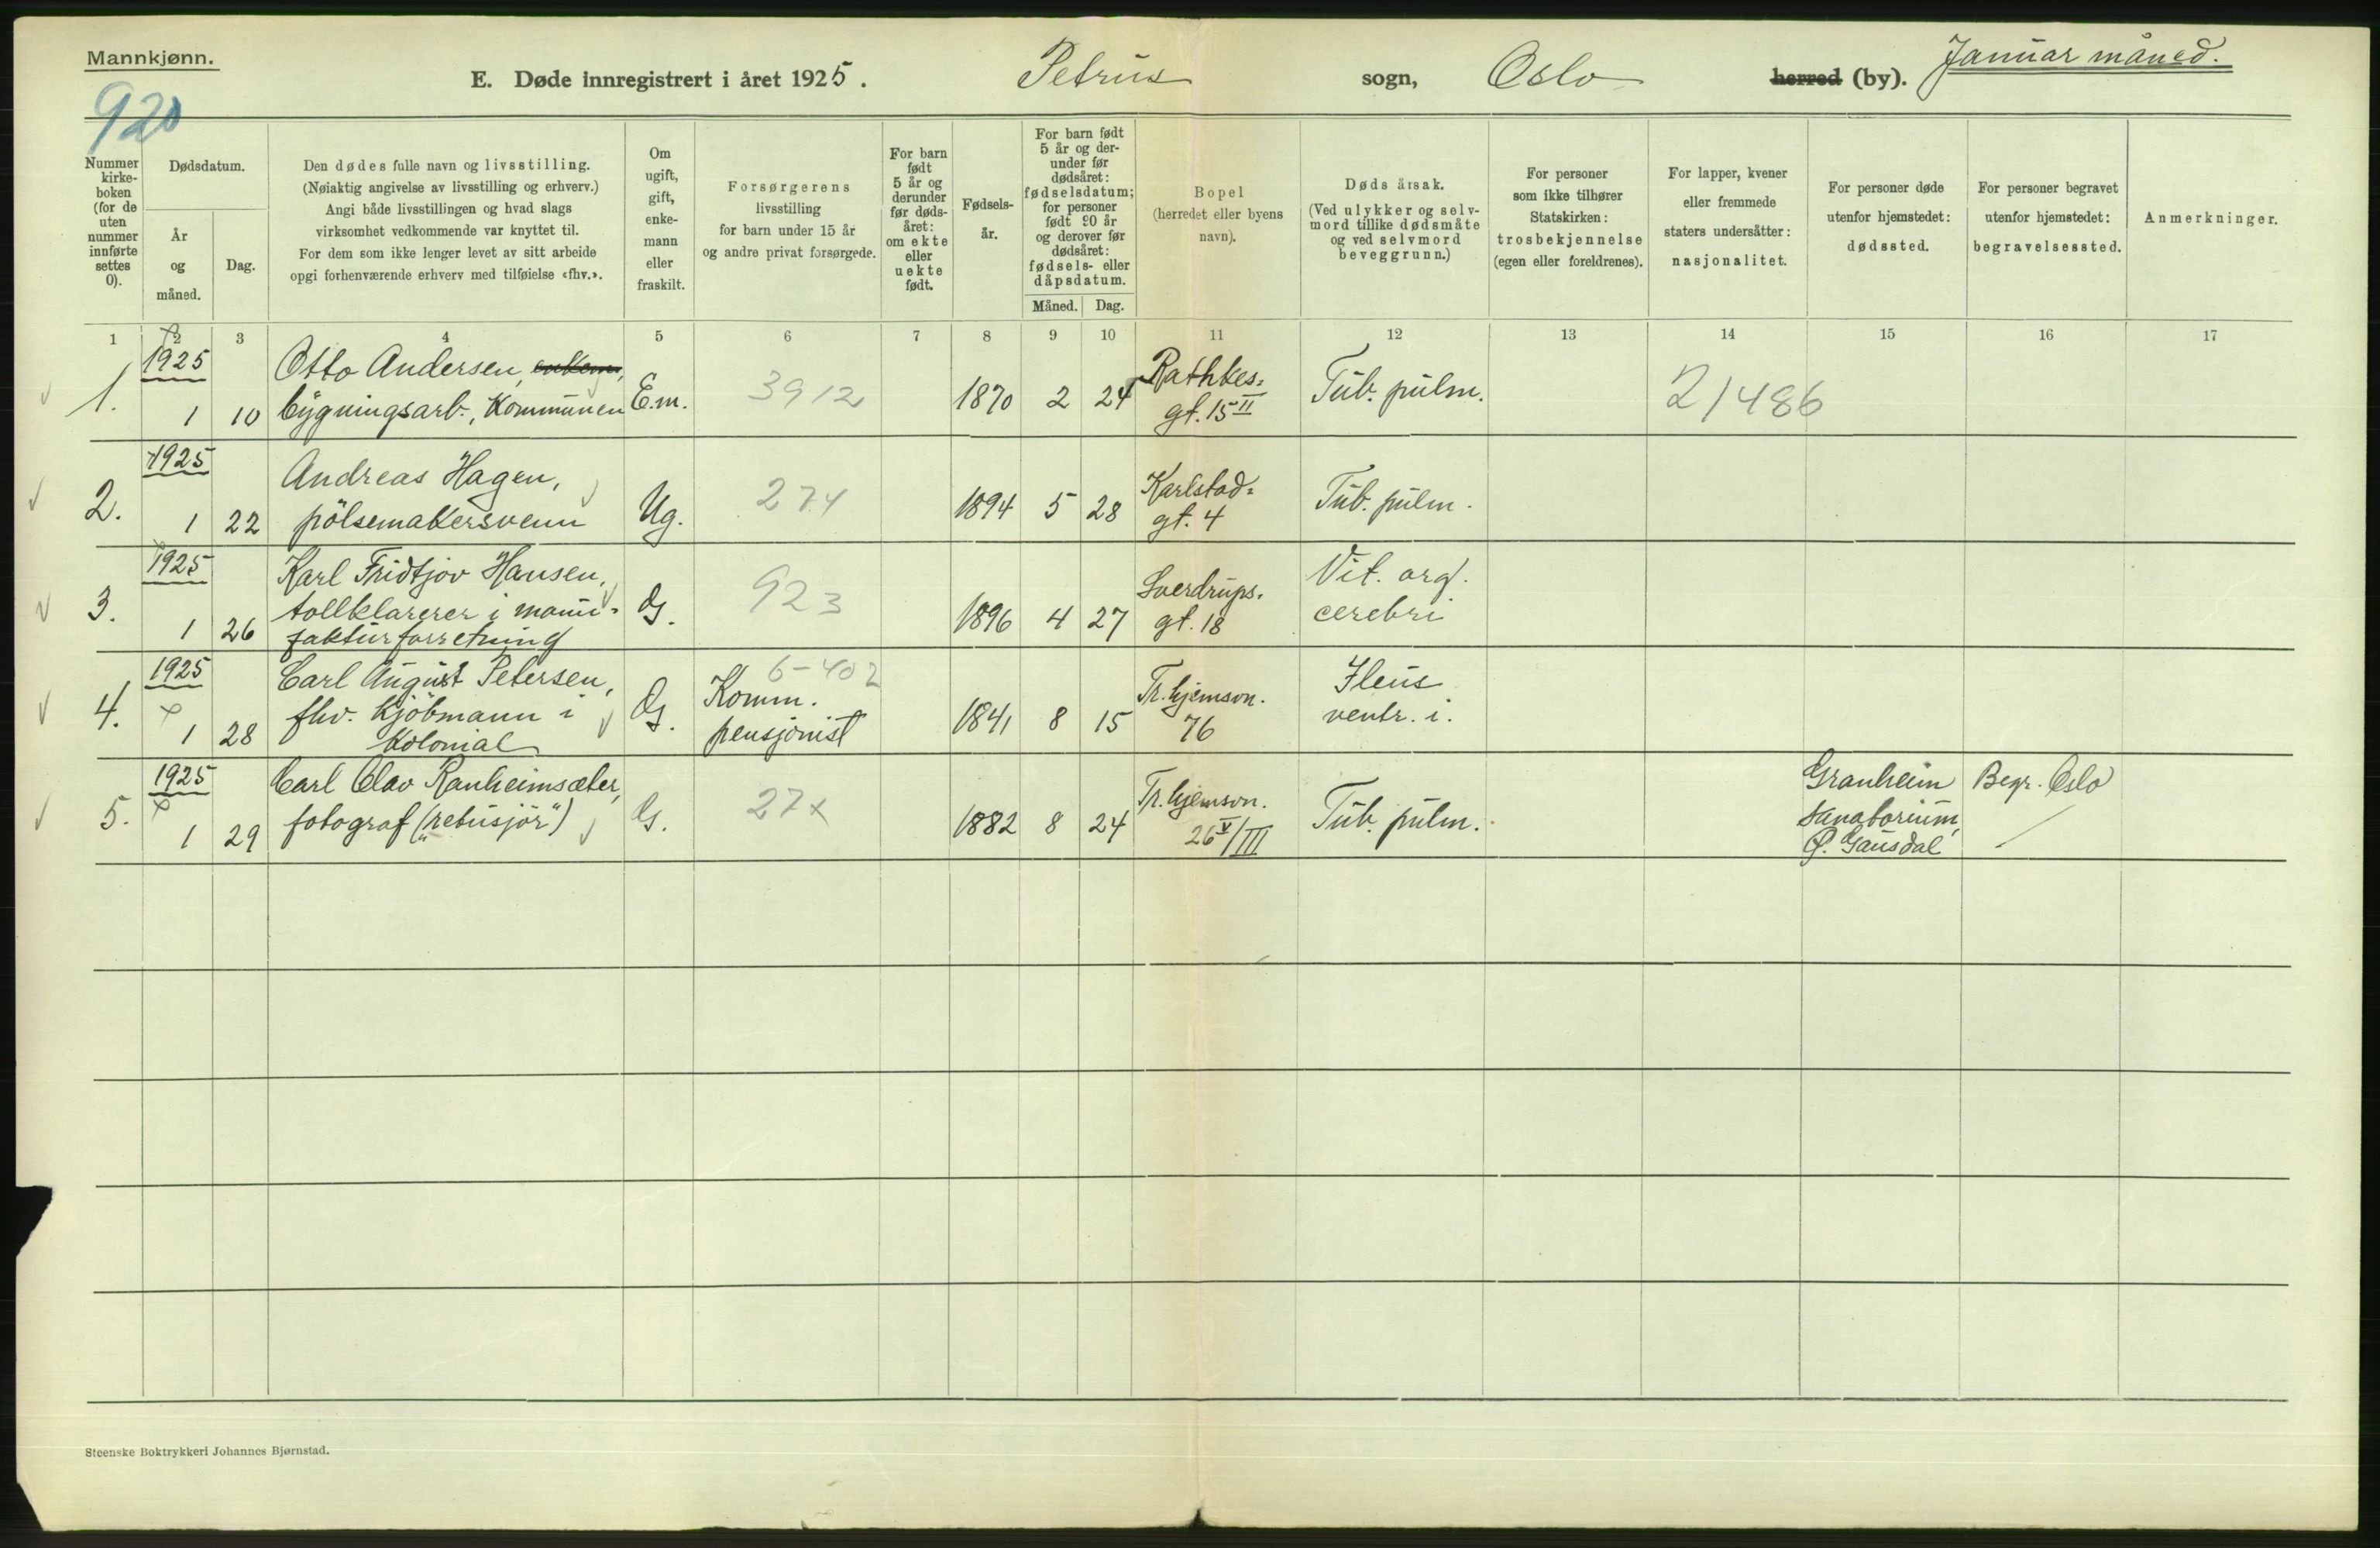 Mannkjønn.
E. Døde innregistrert i året 1925. Petrus sogn, Oslo herred (by). Januar måned.
920
Nummer kirke-boken (for de uten nummer innførte settes 0).
Dødsdatum.
År og måned.
Dag.
Den dødes fulle navn og livsstilling.
(Nøiaktig angivelse av livsstilling og erhverv.)
Angi både livsstillingen og hvad slags
virksomhet vedkommende var knyttet til.
For dem som ikke lenger levet av sitt arbeide
opgi forhenværende erhverv med tilføielse «fhv.».
Om ugift, gift, enke-mann eller fraskilt.
Forsørgerens
livsstilling
for barn under 15 år
og andre privat forsørgede.
For barn født 5 år og derunder før døds-året: om ekte eller uekte født.
Fødsels-år.
For barn født 5 år og der-under før dødsåret: fødselsdatum; for personer født 90 år og derover før dødsåret: fødsels- eller dåpsdatum.
Måned. Dag.
Bopel
(herredet eller byens
navn).
Dødsårsak.
(Ved ulykker og selv-
mord tillike dødsmåte
og ved selvmord
beveggrunn.)
For personer
som ikke tilhører
Statskirken:
trosbekjennelse
(egen eller foreldrenes).
For lapper, kvener
eller fremmede
staters undersåtter:
nasjonalitet.
For personer døde
utenfor hjemstedet:
dødssted.
For personer begravet
utenfor hjemstedet:
begravelsessted.
Anmerkninger.
1 2 3 4 5 6 7 8 9 10 11 12 13 14 15 16 17
1. 1925 1 10 Otto Andersen,
bygningsarb., Kommunen E.m. 3912 1870 2 24 Rathkes=
gt. 15 II Tub. pulm. 21486
2. 1925 1 22 Andreas Hagen,
pölsemakersvenn Ug. 274 1894 5 28 Karlstad=
gt. 4 Tub. pulm.
3. 1925 1 26 Karl Fridtjov Hansen,
tollklarerer i manu-
fakturforretning G. 923 1896 4 27 Sverdrups.
gt. 18 Vit. org.
cerebri
4. 1925 1 28 Carl August Petersen,
fhv. kjöbmann i
kolonial G. 6-402
Komm.
pensjonist 1841 8 15 Tr.hjemsvn.
76 Ileus
ventr. i.
5. 1925 1 29 Carl Olav Ranheimsæter,
fotograf ("retusjör") G. 27x 1882 8 24 Tr.hjemsvn.
26 V/III Tub. pulm. Granheim
Sanatorium,
Ø. Gausdal Begr. Oslo
Steenske Boktrykkeri Johannes Bjørnstad.